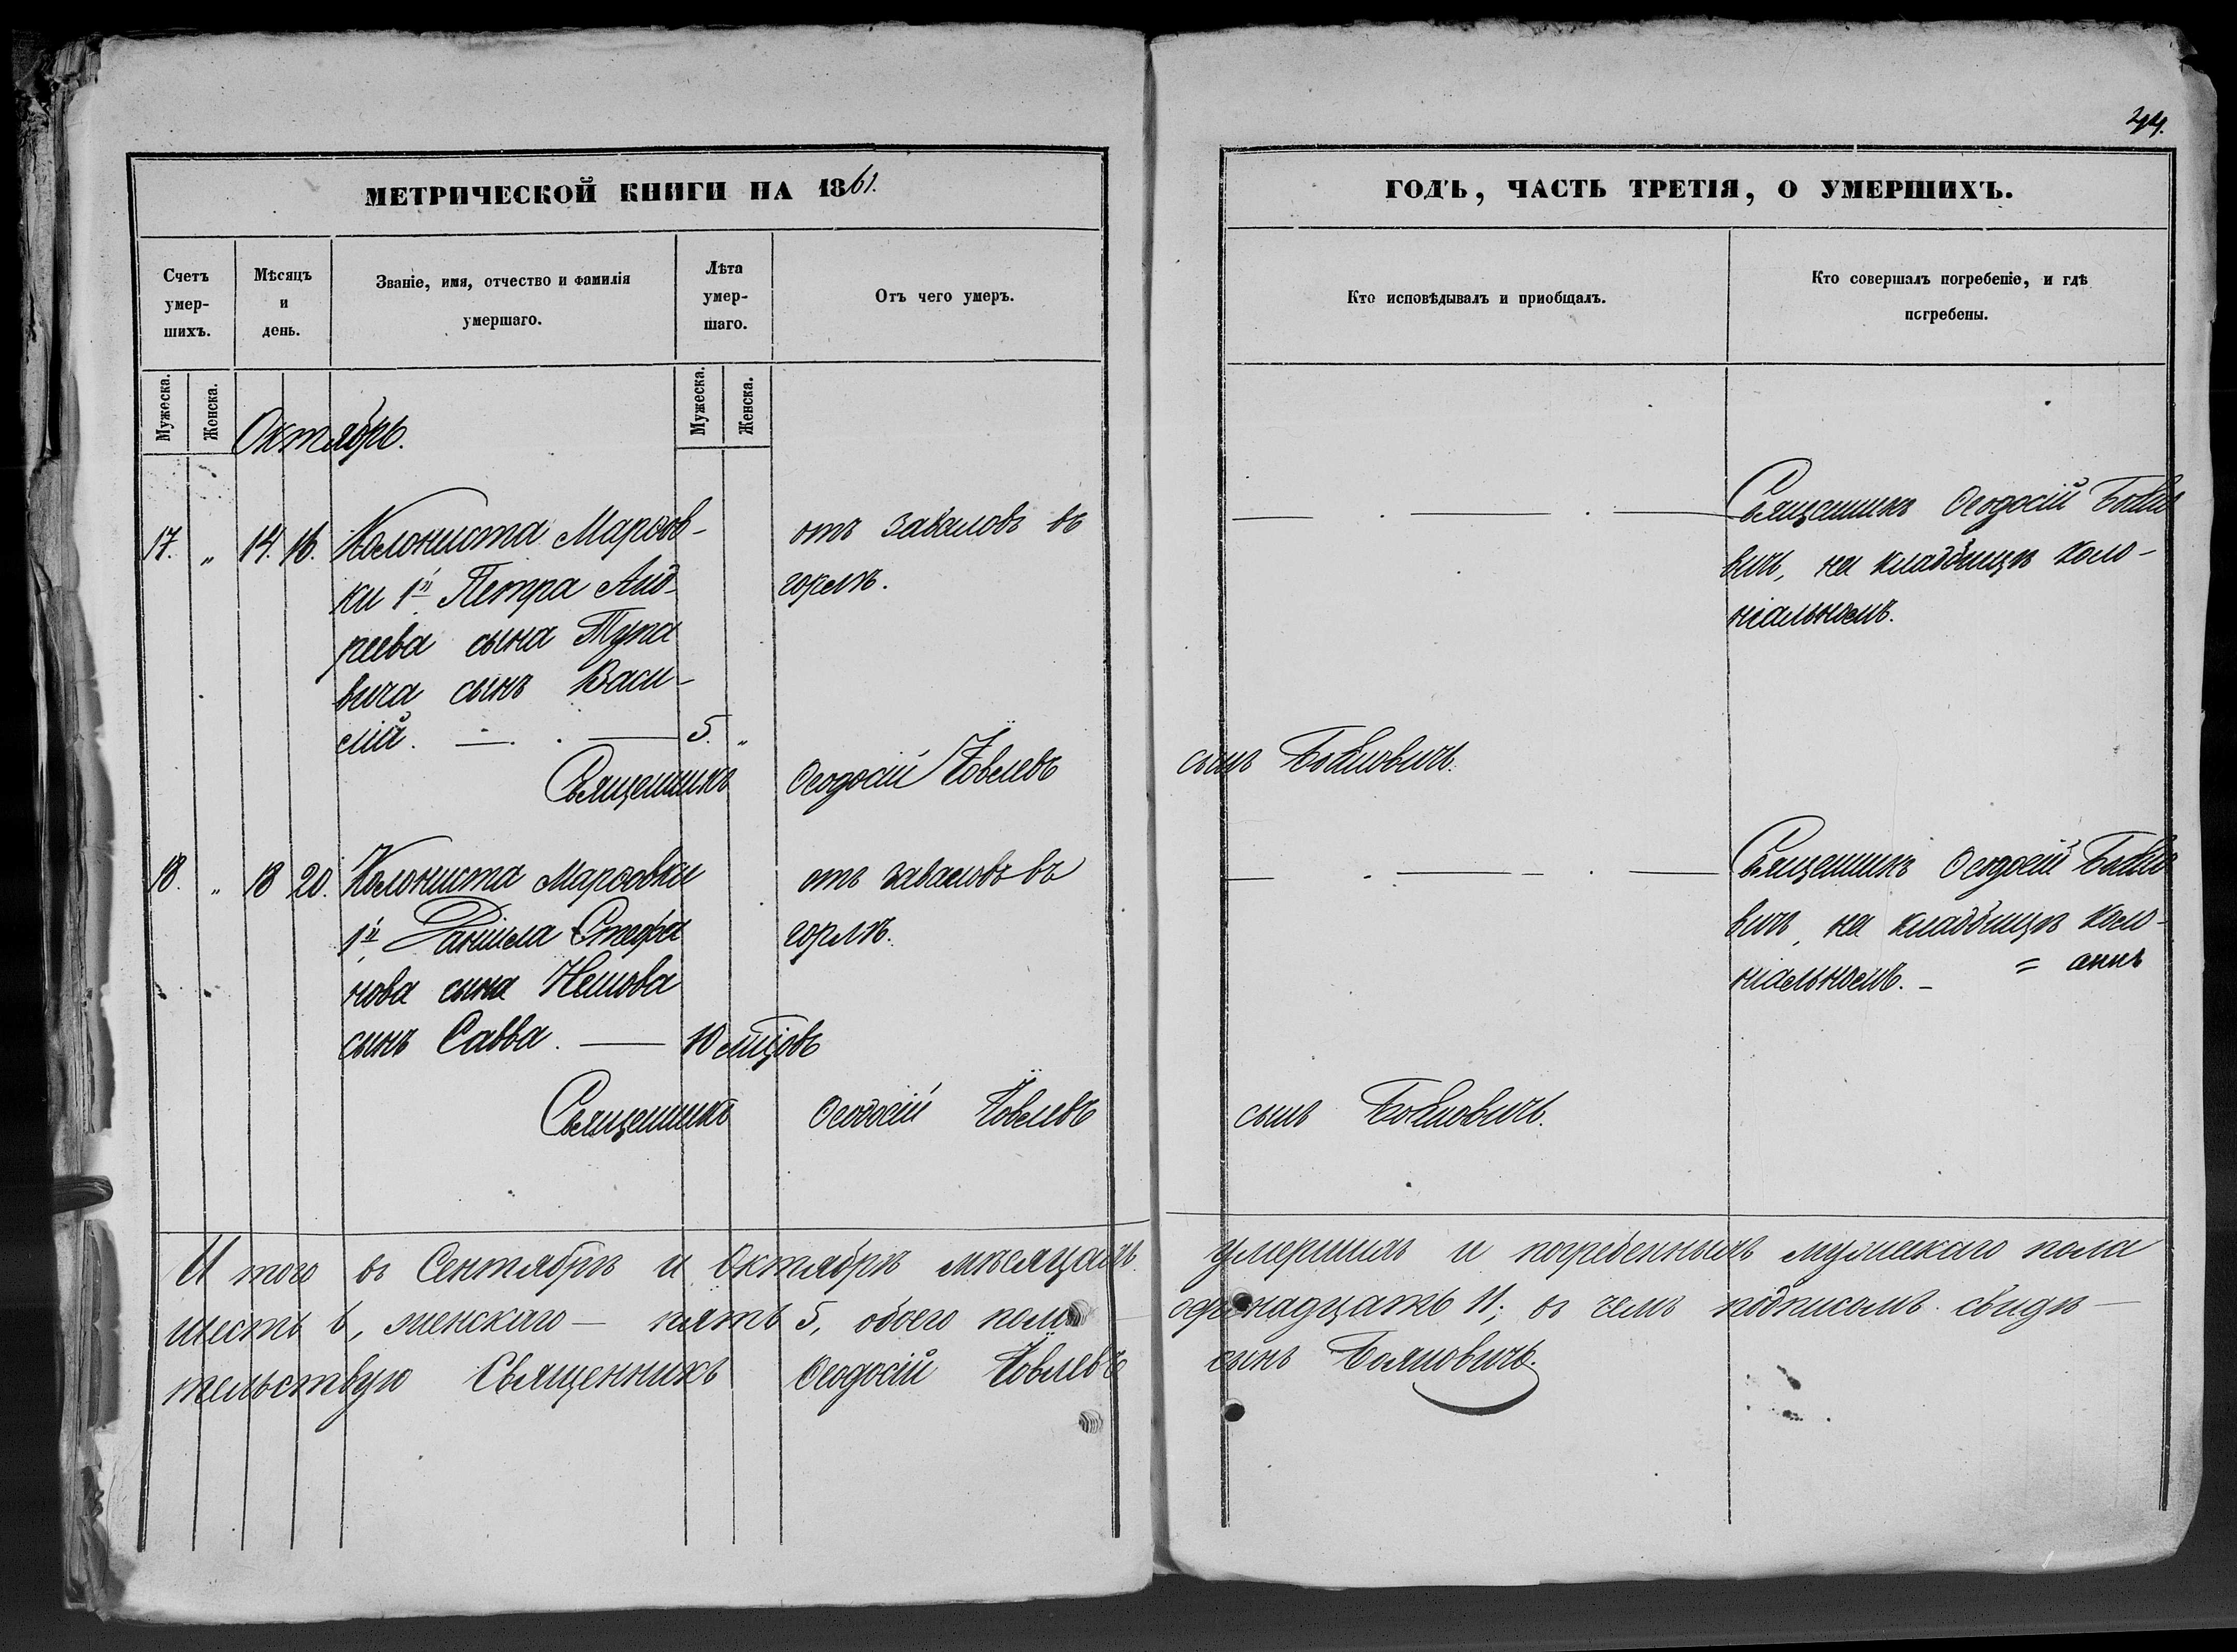 44.
МЕТРИЧЕСКОЙ КНИГИ НА 1861.
ГОДЪ, ЧАСТЬ ТРЕТІЯ, О УМЕРШИХЪ.
Счетъ
умер-
шихъ.
Мѣсяцъ
и
день.
Званіе, имя, отчество и фамилія
умершаго.
Лѣта
умер-
шаго.
Отъ чего умеръ.
Кто исповѣдывалъ и приобщалъ.
Кто совершалъ погребеніе, и гдѣ
погребены.
Мужеска.
Женска.
Мужеска.
Женска.
Октябрь.
17. „ 14. 16. Колониста Марѳов-
ки 1й Петра Анд-
реева сына Тука
вича сынъ Васи-
лій. 5. „
отъ заваловъ въ
горлѣ.
Священникъ Ѳеодосій
вичъ, на кладбищѣ коло-
ніальномъ.
Священникъ Ѳеодосій Іовлевъ
сынъ Бояновичъ.
18. „ 18 20. Колониста Марѳовки
1й Даніила Стефа
нова сына Нешова
сынъ Савва. 10 мцовъ
отъ заваловъ въ
горлѣ.
Священникъ Ѳеодосій
вичъ, на кладбищѣ коло-
ніальномъ. -
Священникъ Ѳеодосій Іовлевъ
сынъ Бояновичъ.
И того въ Сентябрѣ и Октябрѣ мѣсяцахъ умершихъ и погребенныхъ мужескаго пола
шесть 6, женскаго — пять 5, обоего пола одинадцать 11; въ чемъ подписомъ свидѣ-
тельствую Священникъ Ѳеодосій Іовлевъ сынъ Бояновичъ.